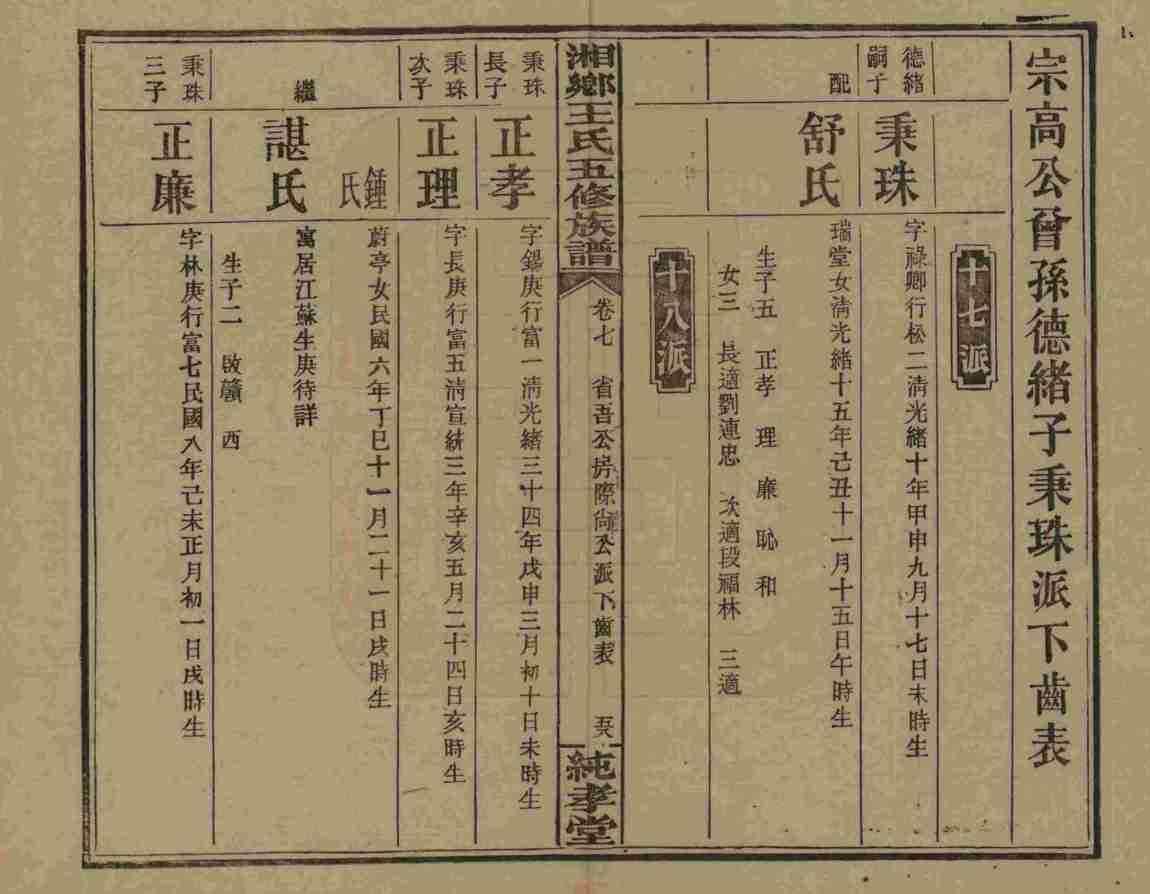 宗高公曾孫德緒子秉珠派下齒表
十七派
德緒
嗣子
秉珠
字祿卿行松二清光緒十年甲申九月十七日未時生
配
舒氏
瑞堂女清光緒十五年己丑十一月十五日午時生
生子五 正孝 理 廉 恥 和
女三 長適劉連忠 次適段福林 三適
十八派
湘鄉王氏五修族譜
卷七 省吾公房際尙公派下齒表
純孝堂
秉珠
長子
正孝
字錫庚行富一清光緒三十四年戊申三月初十日未時生
秉珠
次子
正理
字長庚行富五清宣統三年辛亥五月二十四日亥時生
鍾氏
蔚亭女民國六年丁巳十一月二十一日戌時生
繼
諶氏
寓居江蘇生庚待詳
生子二 啟贛 西
秉珠
三子
正廉
字林庚行富七民國八年己未正月初一日戌時生